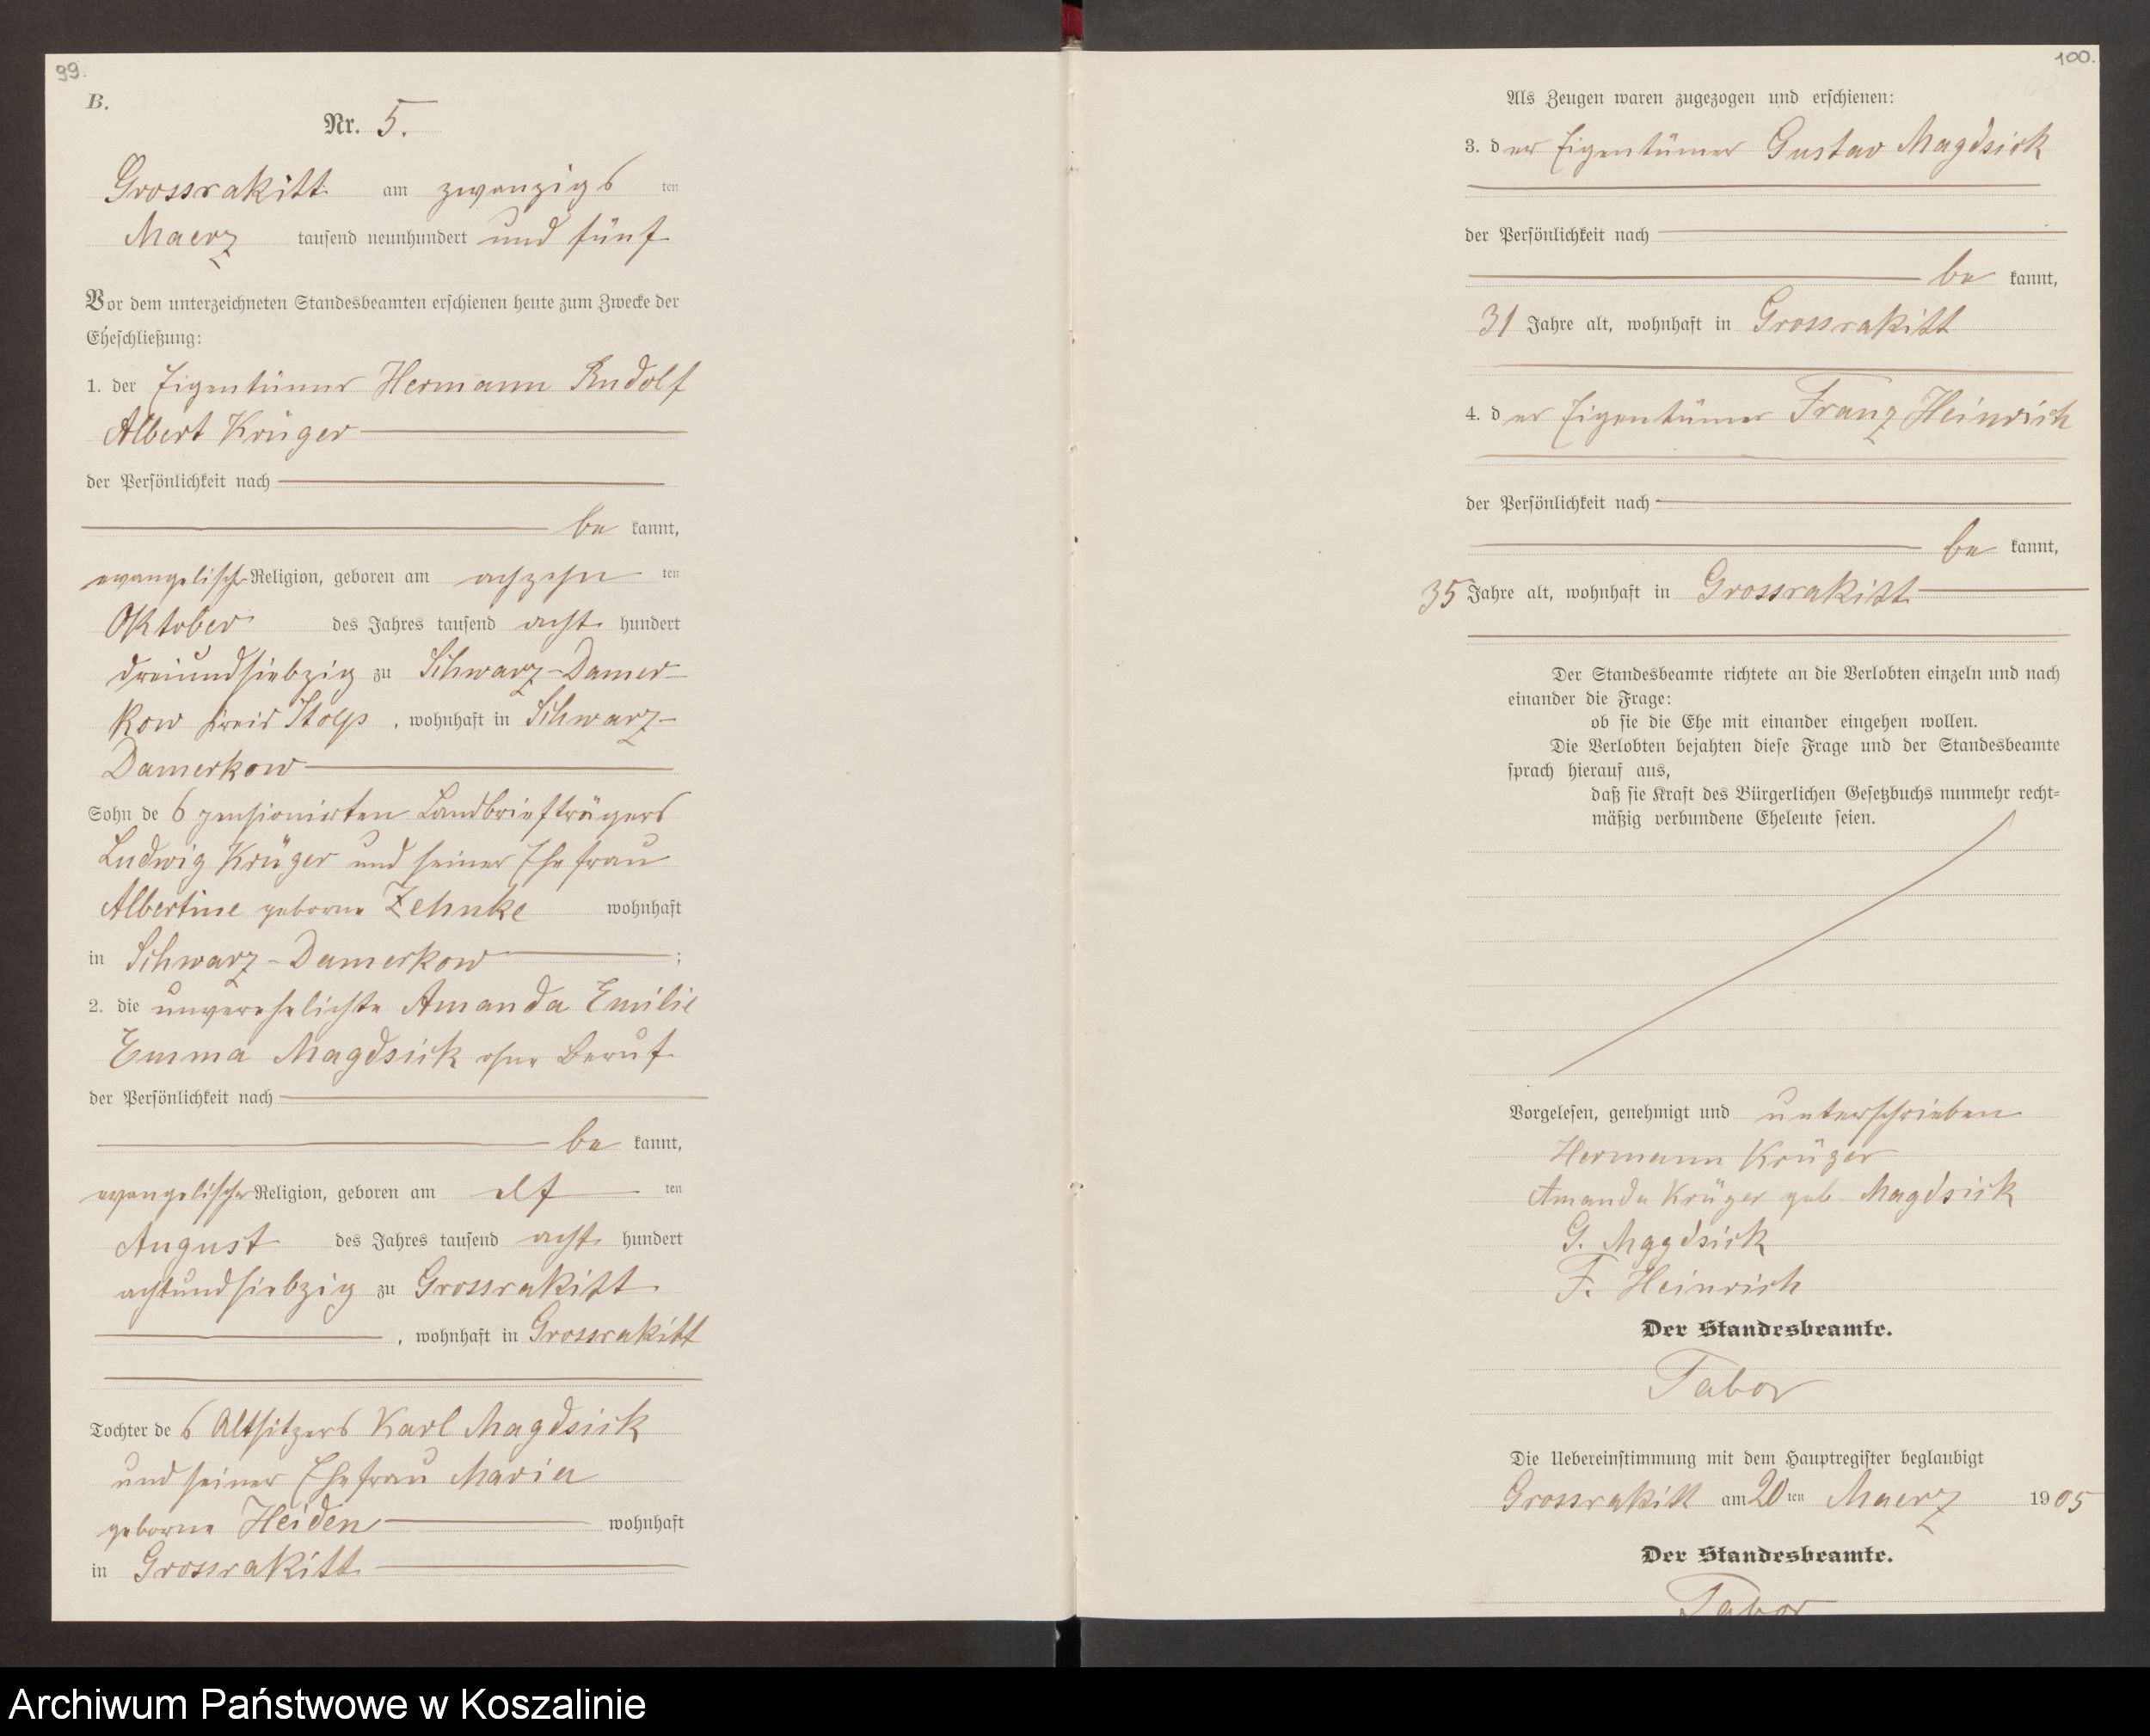 99.
B.
Nr. 5.
Grossrakitt am zwanzigs ten
Maerz tausend neunhundert und fünf
Vor dem unterzeichneten Standesbeamten erschienen heute zum Zwecke der
Eheschließung:
1. der Eigentümer Hermann Rudolf
Albert Krüger
der Persönlichkeit nach
be kannt,
evangelischer Religion, geboren am achzehn ten
Oktober des Jahres tausend acht hundert
dreiundsiebzig zu Schwarz-Damer-
kow Kreis Stolp, wohnhaft in Schwarz-
Damerkow
Sohn des pensionirten Landbriefträgers
Ludwig Krüger und seiner Ehefrau
Albertine geborne Zehnke wohnhaft
in Schwarz-Damerkow ;
2. die unverehelichte Amanda Emilie
Emma Magdsick ohne Beruf
der Persönlichkeit nach
be kannt,
evangelischer Religion, geboren am elf ten
August des Jahres tausend acht hundert
achtundsiebzig zu Grossrakitt
, wohnhaft in Grossrakitt
Tochter des Altsitzers Karl Magdsick
und seiner Ehefrau Maria
geborne Heiden wohnhaft
in Grossrakitt
100.
Als Zeugen waren zugezogen und erschienen:
3. der Eigentümer Gustav Magdsick
der Persönlichkeit nach
be kannt,
31 Jahre alt, wohnhaft in Grossrakitt
4. der Eigentümer Franz Heinrich
der Persönlichkeit nach
be kannt,
35 Jahre alt, wohnhaft in Grossrakitt
Der Standesbeamte richtete an die Verlobten einzeln und nach
einander die Frage:
ob sie die Ehe mit einander eingehen wollen.
Die Verlobten bejahten diese Frage und der Standesbeamte
sprach hierauf aus,
daß sie Kraft des Bürgerlichen Gesetzbuchs nunmehr recht=
mäßig verbundene Eheleute seien.
Vorgelesen, genehmigt und unterschrieben
Hermann Krüger
Amanda Krüger geb. Magdsick
G. Magdsick
F. Heinrich
Der Standesbeamte.
Tabor
Die Uebereinstimmung mit dem Hauptregister beglaubigt
Grossrakitt am 20 ten Maerz 1905
Der Standesbeamte.
Tabor
Archiwum Państwowe w Koszalinie